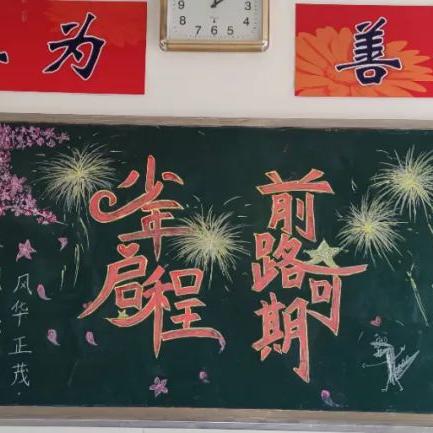 为
善
少年启程
前路可期
风华正茂.
9 3
8 4
7 6 5